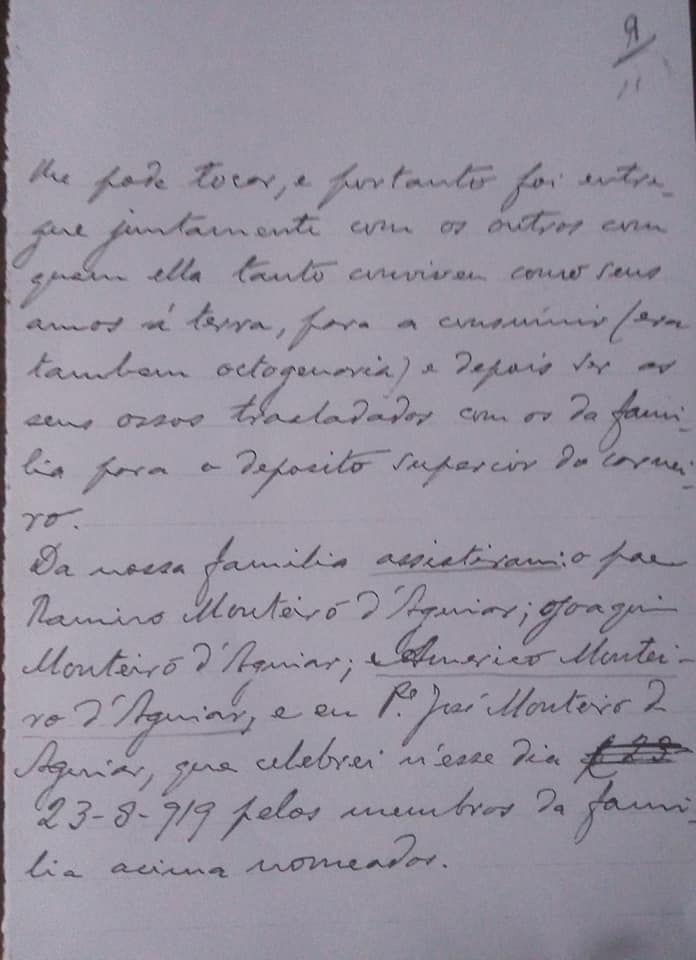 9
11
lhe pode tocar, e portanto foi entre-
gue juntamente com os outros com
quem ella tanto conviveu como seus
amos á terra, para a consumir (era
tambem octogenaria) e depois ser os
seus ossos trasladados com os da fami-
lia para o deposito superior do carnei-
ro.
Da nossa familia assistiram: o pae
Ramiro Monteiro d'Aguiar; Joaquim
Monteiro d'Aguiar; e Americo Montei-
ro d'Aguiar, e eu P.e José Monteiro d
Aguiar, que celebrei n'esse dia
23-8-919 pelos membros da fami-
lia acima nomeados.